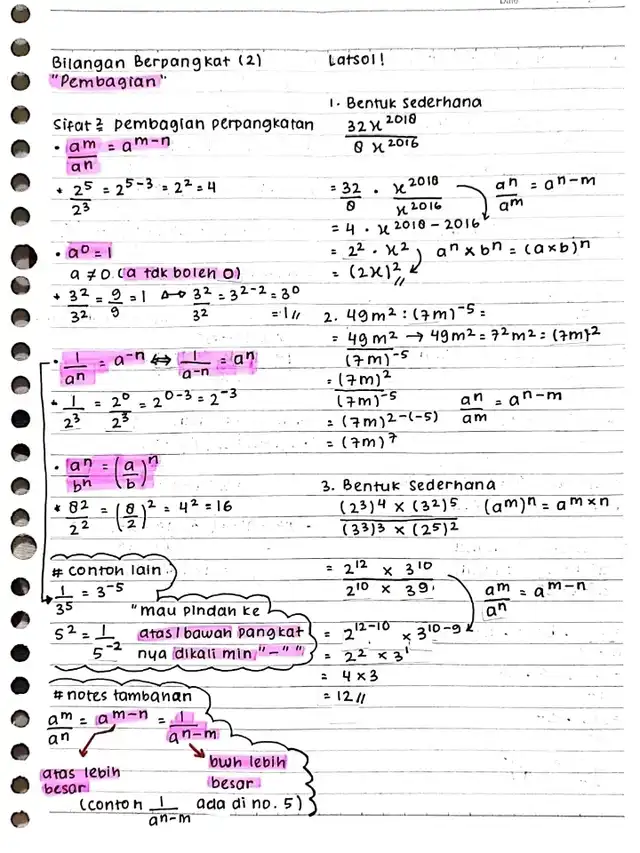 Date
Bilangan Berpangkat (2)
"Pembagian"
Sifat2 pembagian perpangkatan
• a^m/a^n = a^m-n
* 2^5/2^3 = 2^5-3 = 2^2 = 4
• a^0 = 1
a ≠ 0 (a tdk boleh 0)
* 3^2/3^2 = 9/9 = 1 ↔ 3^2/3^2 = 3^2-2 = 3^0
= 1 //
• 1/a^n = a^-n ⇔ 1/a^-n = a^n
* 1/2^3 = 2^0/2^3 = 2^0-3 = 2^-3
• a^n/b^n = (a/b)^n
* 8^2/2^2 = (8/2)^2 = 4^2 = 16
# contoh lain
1/3^5 = 3^-5
"mau pindah ke
5^2 = 1/5^-2 atas/bawah pangkat
nya dikali min "-" "
# notes tambahan
a^m/a^n = a^m-n = 1/a^n-m
atas lebih
besar
bwh lebih
besar
(contoh 1/a^n-m ada di no. 5)
Latsol!
1. Bentuk sederhana
32x^2018/8x^2016
= 32/8 . x^2018/x^2016 a^n/a^m = a^n-m
= 4 . x^2018-2016
= 2^2 . x^2 a^n x b^n = (a x b)^n
= (2x)^2 //
2. 49m^2 : (7m)^-5 =
= 49m^2/(7m)^-5 → 49m^2 = 7^2m^2 = (7m)^2
= (7m)^2/(7m)^-5 a^n/a^m = a^n-m
= (7m)^2-(-5)
= (7m)^7
3. Bentuk sederhana
(2^3)^4 x (3^2)^5/(3^3)^3 x (2^5)^2 (a^m)^n = a^m x n
= 2^12 x 3^10/2^10 x 3^9 a^m/a^n = a^m-n
= 2^12-10 x 3^10-9
= 2^2 x 3^1
= 4 x 3
= 12 //